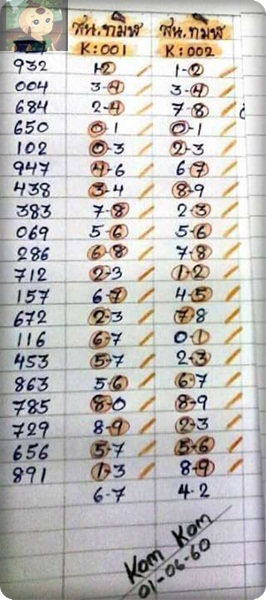 สน.ทมิฬ สน.ทมิฬ
K:001 K:002
932 1-2 1-2
004 3-4 3-4
684 2-4 7-8
650 0-1 0-1
102 0-3 2-3
947 4-6 6-7
438 3-4 8-9
383 7-8 2-3
069 5-6 5-6
286 6-8 7-8
712 2-3 1-2
157 6-7 4-5
672 2-3 7-8
116 6-7 0-1
453 5-7 2-3
863 5-6 6-7
785 8-0 8-9
729 8-9 2-3
656 5-7 5-6
891 1-3 8-9
6-7 4-2
Kom Kom
01-06-60